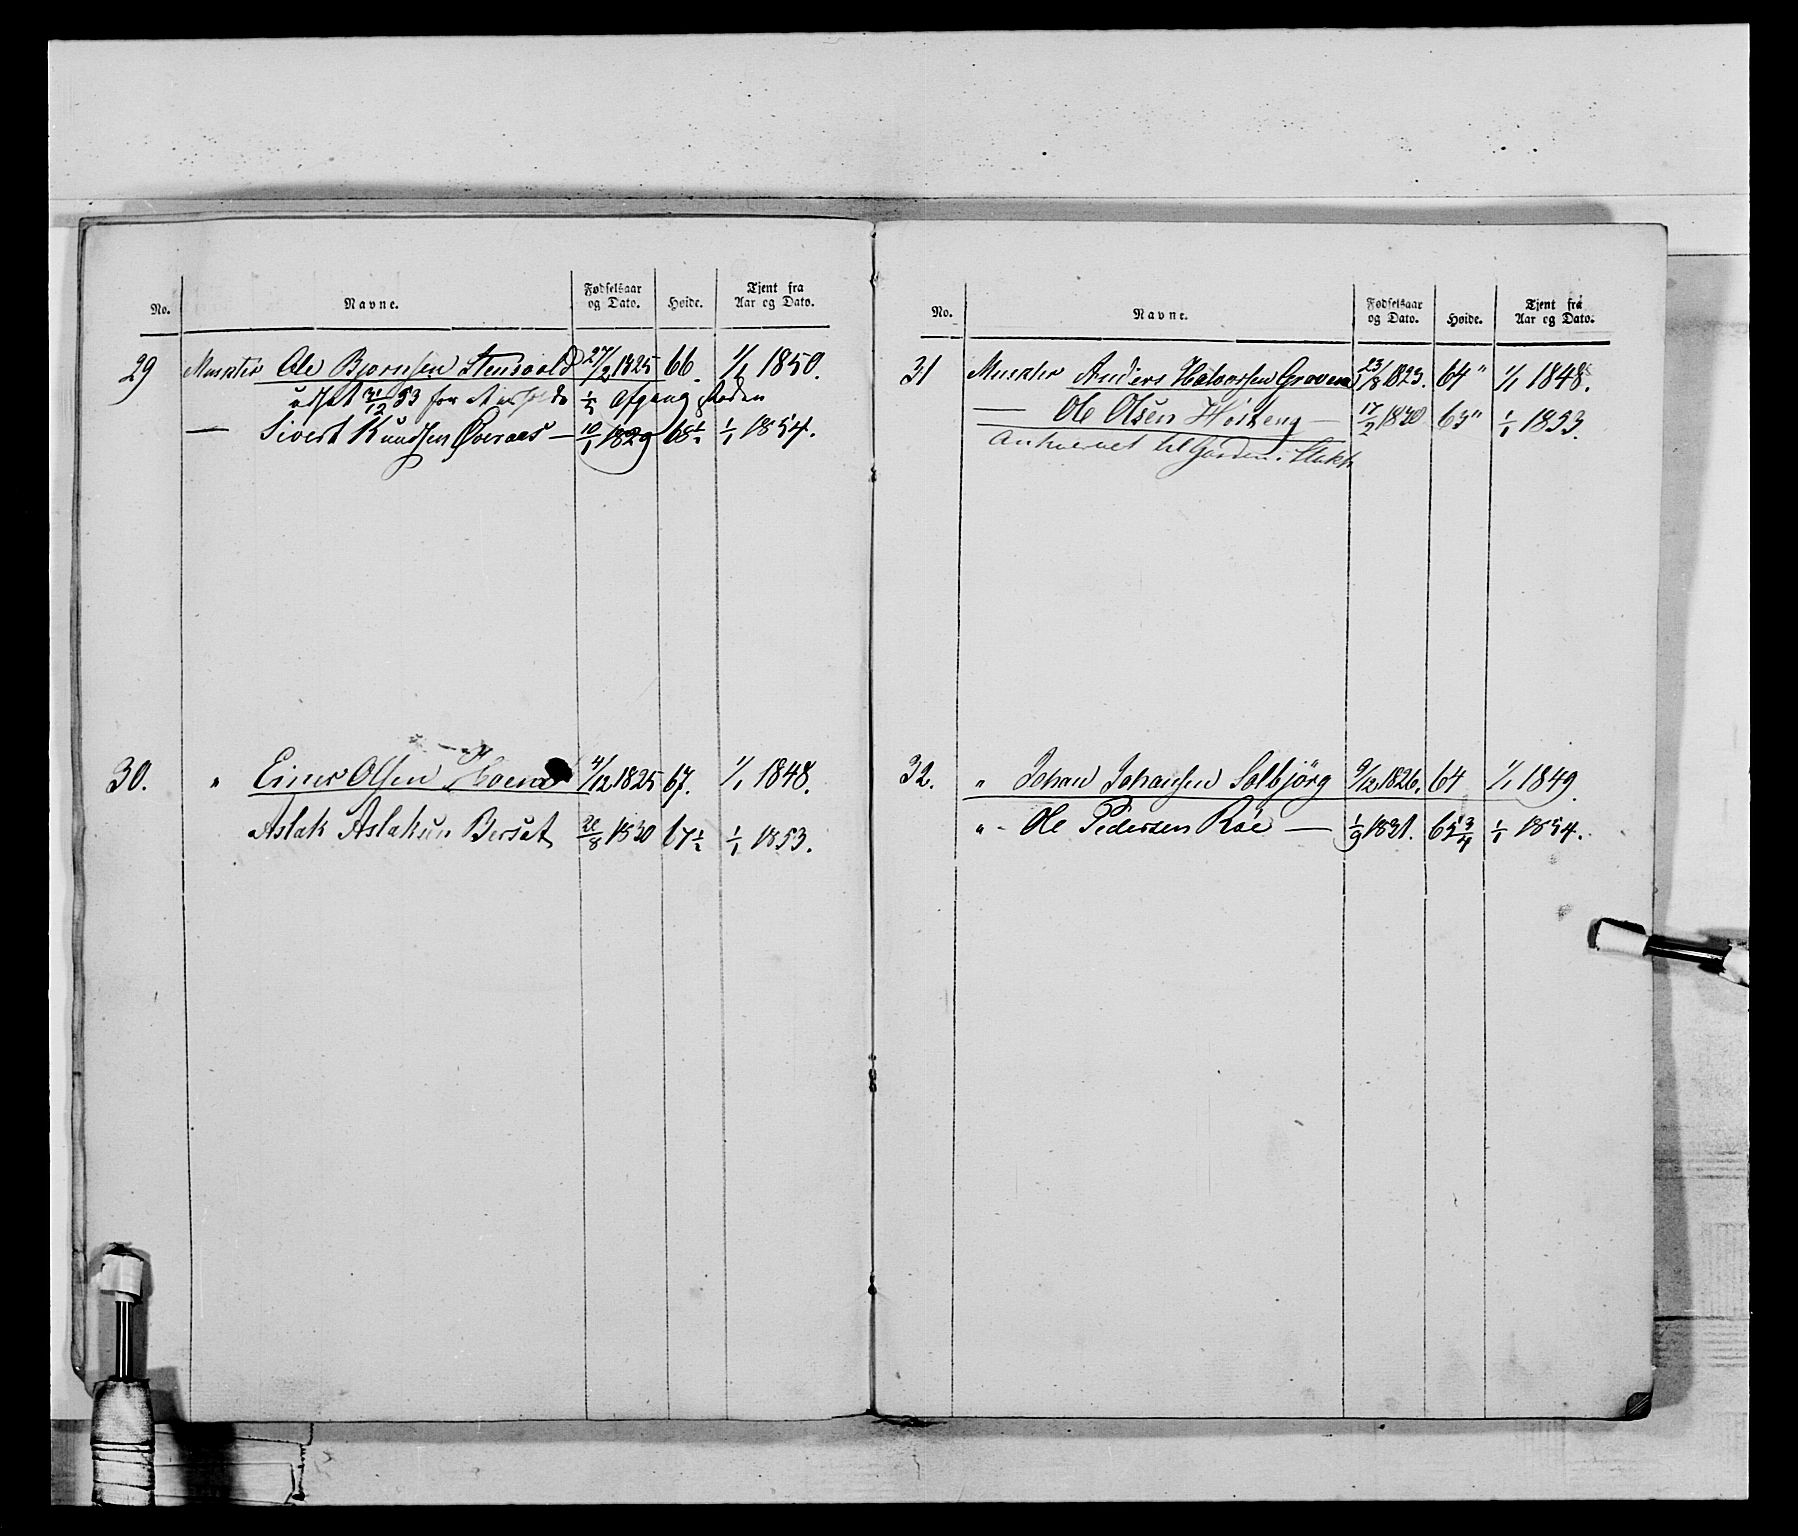 No.
Navne.
Fødselsaar og Dato.
Høide.
Tjent fra Aar og Dato.
29 Musktir Ole Bjørnsen Stensvold 27/2 1825 66. 1/1 1850.
udsat 31/12 53 for Afgang
— Sivert Knudsen Øveraas — 10/1 1829 68½ 1/1 1854.
30. " Einer Olsen 4/12 1825 67. 1/1 1848.
Aslak Aslaksen Bersat 20/8 1830 67½ 1/1 1853.
No.
Navne.
Fødselsaar og Dato.
Høide.
Tjent fra Aar og Dato.
31 Musktir Anders Halvorsen Groven 23/8 1823. 64" 1/1 1848.
— Ole Olsen Høiheng — 17/2 1830 63" 1/1 1853.
til Garden
32. " Johan Johansen Solbjörg 9/12 1826. 64 1/1 1849.
" - Ole Pedersen Röe — 1/9 1831. 65¾ 1/1 1854.